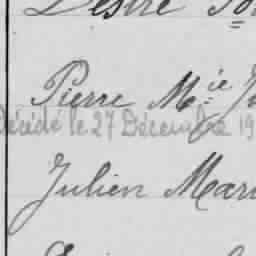 Désiré
Pierre M.ie
Décédé le 27 Décembre 19
Julien Mar